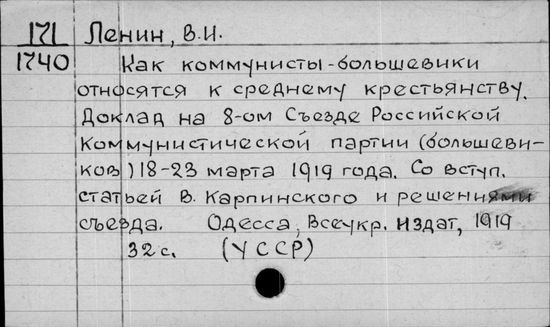 171 Ленин, В.И.
1740 Как коммунисты-большевики
относятся к среднему крестьянству.
Доклад на 8-ом Съезде Российской
Коммунистической партии (большеви-
ков) 18-23 марта 1919 года. Со вступ.
статьей В. Карпинского и решениями
съезда. Одесса, Всеукр. Издат, 1919
32 с. (УССР)